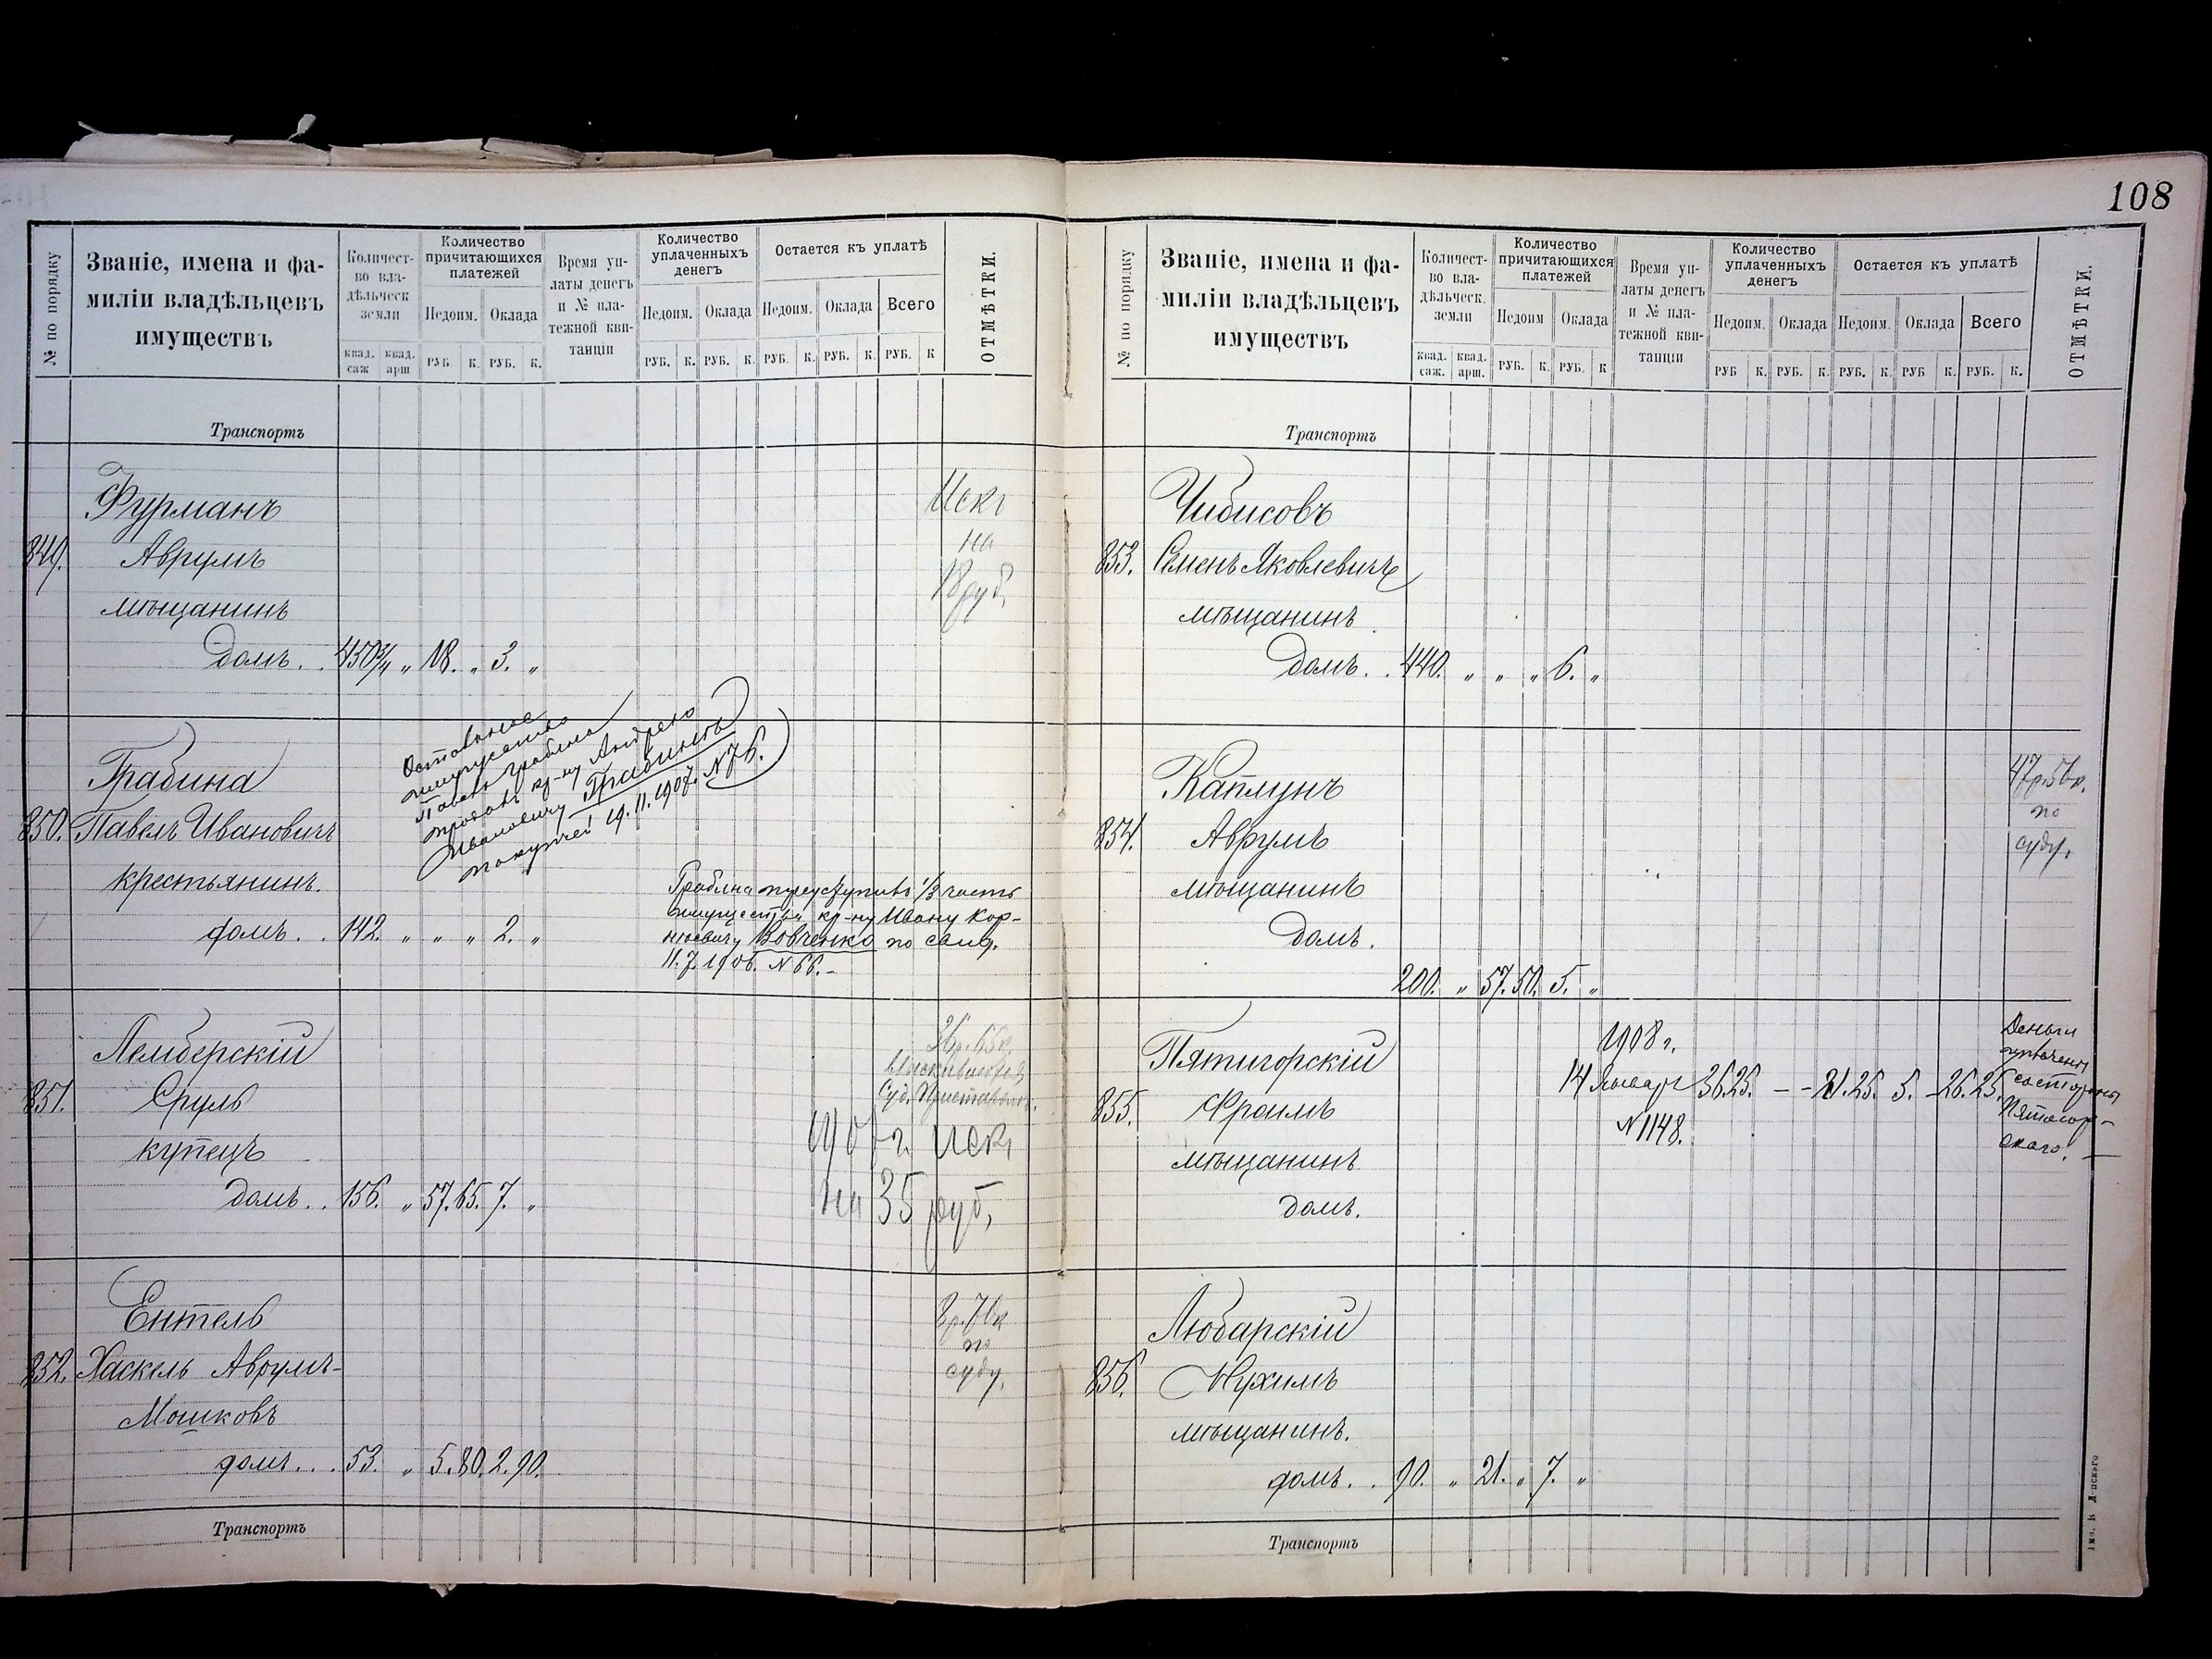 108
№ по порядку
Званіе, имена и фа-
миліи владѣльцевъ
имуществъ
Количест-
во вла-
дѣльческ
земли
квад. саж
квад. арш
Количество
причитающихся
платежей
Недоим. Оклада
РУБ К. РУБ. К.
Время уп-
латы денегъ
и № пла-
тежной кви-
танціи
Количество
уплаченныхъ
денегъ
Недоим. Оклада
РУБ. К. РУБ. К.
Остается къ уплатѣ
Недоим. Оклада Всего
РУБ. К. РУБ. К. РУБ. К
ОТМѢТКИ.
Транспортъ
Фурманъ
849. Аврумъ
мѣщанинъ
домъ . . 450¾ „ 18. „ 3. „
Искъ
на
18 руб,
Грабина
850. Павелъ Ивановичъ
крестьянинъ.
домъ . . 142. „ „ „ 2. „
Остальное
имущество
Павелъ Грабина
продалъ кр-ну Андрею
Ивановичу Грабинѣ
19.11.1907. N 76.
Грабина переуступилъ 1/3 часть
имущества кр-ну Ивану Кор-
нѣевичу Вовченко по свид.
11.7.1906. N 66.-
Лемберскій
851. Сруль
купецъ
домъ . . 156. „ 57. 65. 7. „
Суд. Приставомъ.
1907 г. иск,
на 35 руб,
Ентель
852. Хаскель Аврумъ-
Мошковъ
домъ . . . 53. „ 5. 80. 2. 90.
8 р. 70 к
по
суду.
Транспортъ
№ по порядку
Званіе, имена и фа-
миліи владѣльцевъ
имуществъ
Количест-
во вла-
дѣльческ.
земли
квад. саж.
квад. арш.
Количество
причитающихся
платежей
Недоим Оклада
РУБ. К. РУБ. К
Время уп-
латы денегъ
и № пла-
тежной кви-
танціи
Количество
уплаченныхъ
денегъ
Недоим. Оклада
РУБ К. РУБ. К.
Остается къ уплатѣ
Недоим. Оклада Всего
РУБ. К. РУБ К. РУБ. К.
ОТМѢТКИ.
Транспортъ
Чибисовъ
853. Семенъ Яковлевичъ
мѣщанинъ
домъ . . 440. „ „ „ 6. „
Каплунъ
854. Аврумъ
мѣщанинъ
домъ .
200. „ 57. 50. 5. „
47 р. 50 к.
по
суду.
Пятигорскій
855. Фроимъ
мѣщанинъ
домъ.
1908 г.
14 Января 36 25. — - 21. 25. 5. — 26. 25.
N 1148.
Деньги
Пятигор-
скаго.
Любарскій
856. Нухимъ
мѣщанинъ.
домъ . . 90. „ 21. „ 7. „
Транспортъ